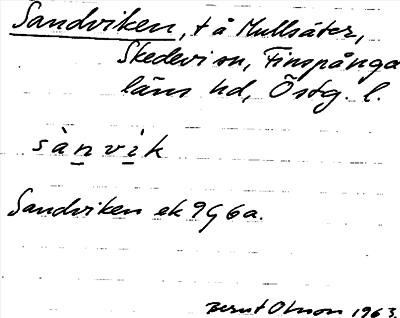 Sandviken, t å Mullsäter,
Skedevi sn, Finspånga
läns hd, Östg. l.
sànvìk
Sandviken ek 9G6a.
Bernt Olsson 1963.